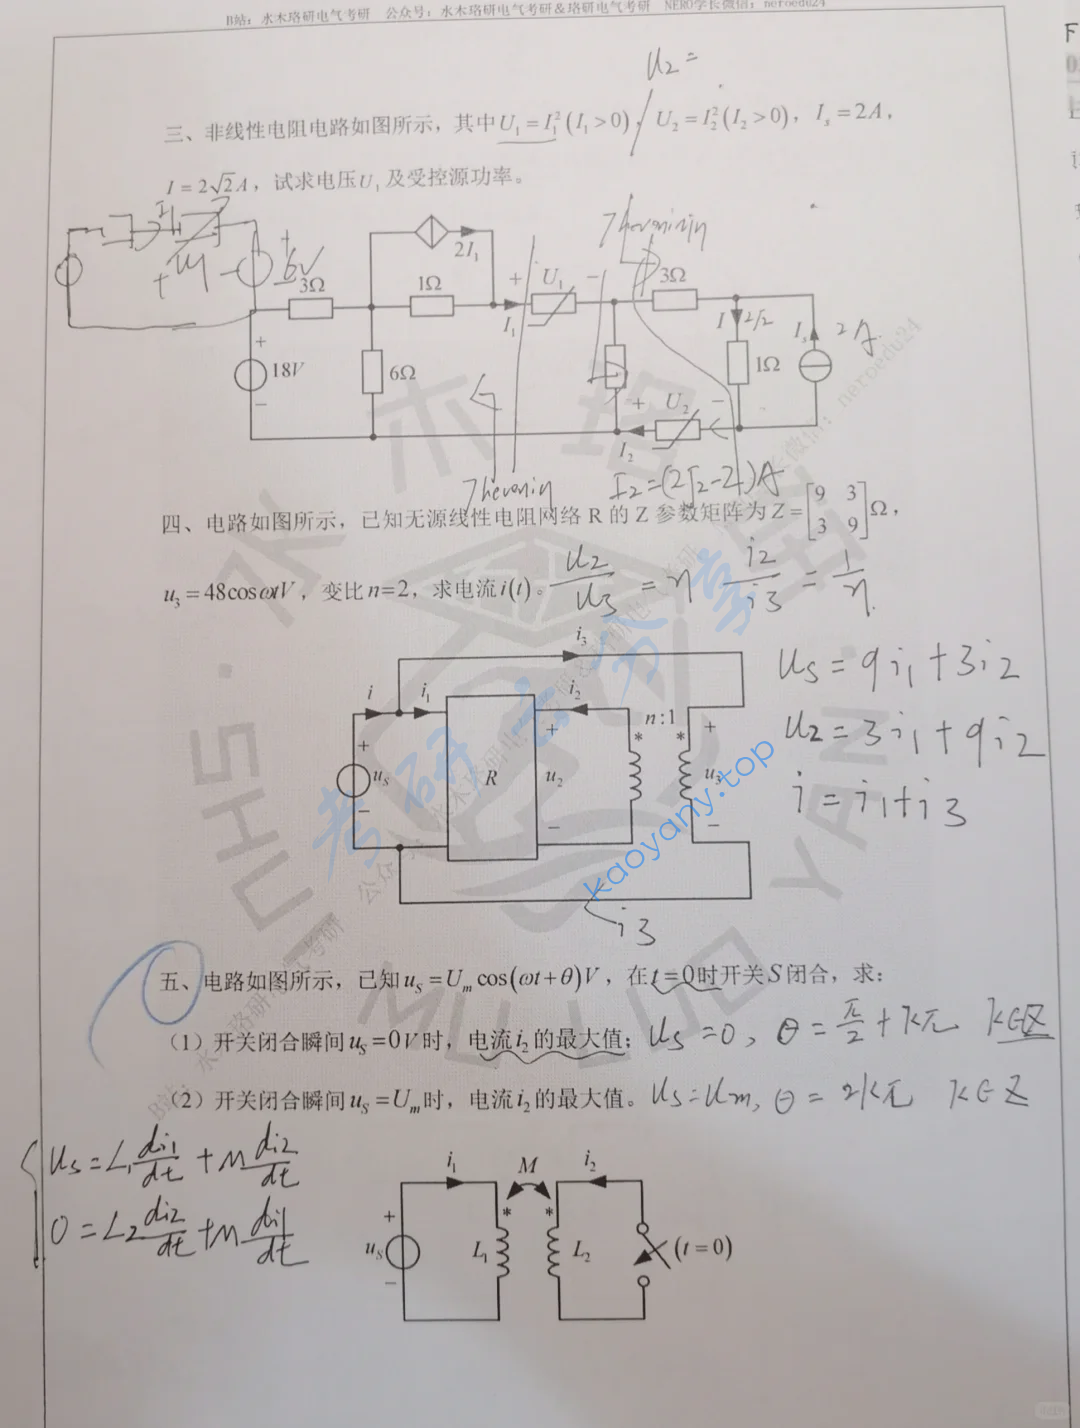 B站：水木珞研电气考研 公众号：水木珞研电气考研&珞研电气考研 NERO学长微信：neroedu24
U₂ =
三、非线性电阻电路如图所示，其中U₁ = I₁² (I₁ > 0)，U₂ = I₂² (I₂ > 0)，Iₛ = 2A，
I = 2√2A，试求电压U₁及受控源功率。
Thevenin
I₁
2I₁
+ U₁ −
+ 6V
3Ω
1Ω
+ U₁ −
3Ω
I₁
I 2√2
Iₛ 2A
+
18V
−
6Ω
1Ω
+ U₂ −
I₂
Thevenin
I₂=(2√2-2)A
四、电路如图所示，已知无源线性电阻网络 R 的 Z 参数矩阵为 Z = [9 3; 3 9] Ω，
u₃ = 48cosωtV，变比 n=2，求电流 i(t)。 u₂/u₃ = n i₂/i₃ = 1/n
i₃
uₛ = 9i₁+3i₂
i i₁ i₂
n:1
u₂ = 3i₁+9i₂
+ + * * +
uₛ R u₂ u₃
i = i₁+i₃
− − −
i₃
五、电路如图所示，已知uₛ = Uₘ cos(ωt+θ)V，在t=0时开关S闭合，求：
（1）开关闭合瞬间uₛ =0V时，电流i₂的最大值； uₛ =0, θ = π/2 + kπ k∈Z
（2）开关闭合瞬间uₛ =Uₘ时，电流i₂的最大值。 uₛ=Uₘ, θ = 2kπ k∈Z
uₛ = L₁ di₁/dt + M di₂/dt
0 = L₂ di₂/dt + M di₁/dt
i₁ M i₂
+ * *
uₛ L₁ L₂ (t=0)
−
考研云分享
kaoyany.top
水木珞研
SHUI MU LUO YAN